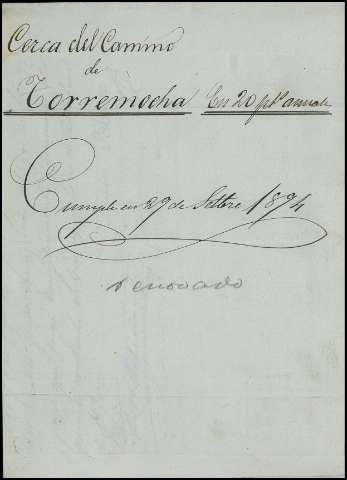 Cerca del Camino
de
Torremocha En 20 pts anuale
Cumple en 29 de Setbre 1894
renovado